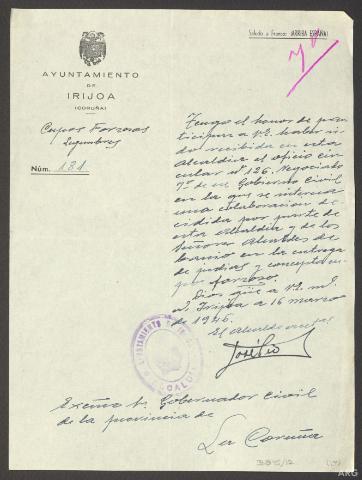 Saludo a Franco: ¡ARRIBA ESPAÑA!
AYUNTAMIENTO
DE
IRIJOA
(CORUÑA)
Cupos Forzosos
Legumbres
Núm. 181
Tengo el honor de par
ticipar a V.E. haber si
do recibido en esta
Alcaldía el oficio cir
cular nº 126, Negociado
7º de ese Gobierno Civil
en la que se interesa
una colaboracion de
cidida por parte de
esta Alcaldía y de los
Señores Alcaldes de
barrio en la entrega
de judias y concepto cu
po forzoso.
Dios gue a V.E. m.
a. Irijoa a 16 marzo
de 1946.
El Alcalde
José
AYUNTAMIENTO DE
ALCALDIA
Excmo Sr. Gobernador Civil
de la provincia de
La Coruña
ARG